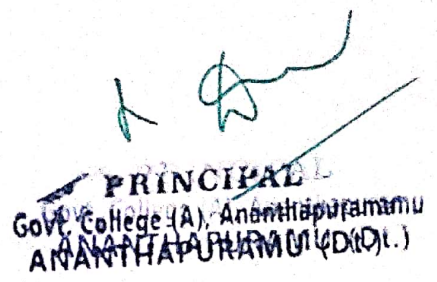 PRINCIPAL
Govt. College (A), Ananthapuramamu
ANANTHAPURAMU (Dt.)